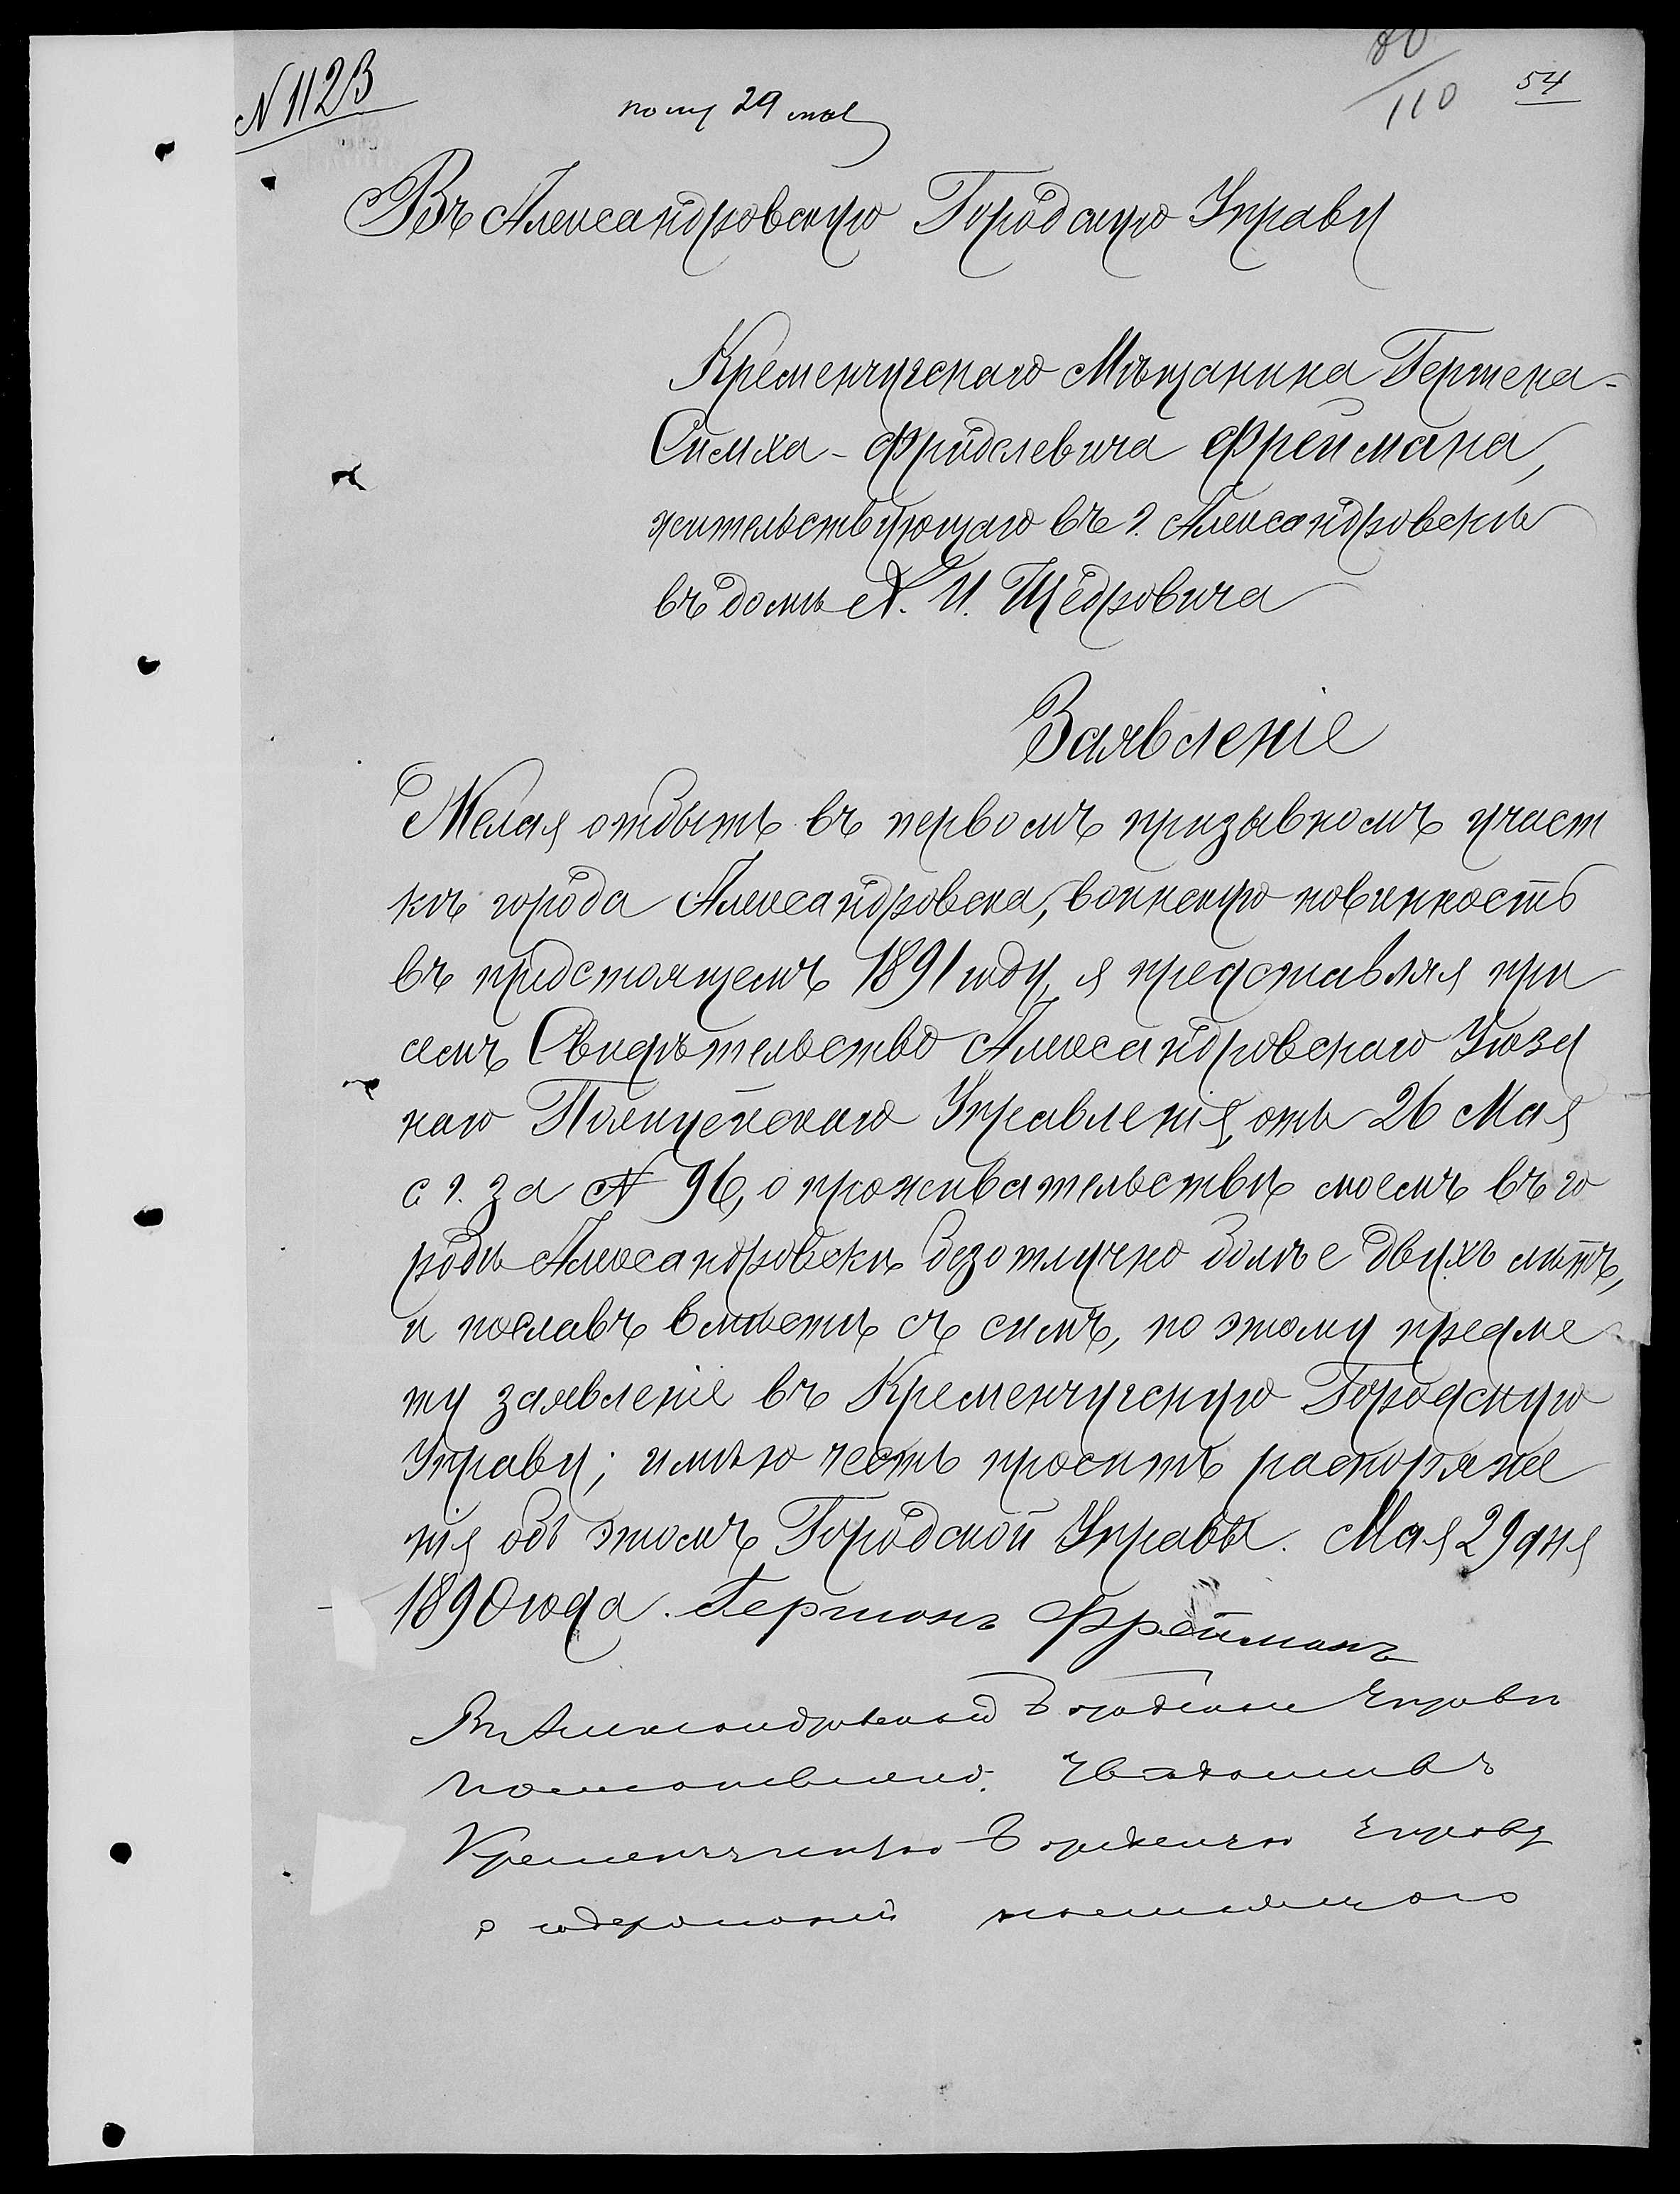 N 1123
80
110
54
полу 29 мая
Въ Александровскую Городскую Управу
Кременчугскаго Мѣщанина Гершена-
Симха-Фридслевича Фреймана,
жительствующаго въ г. Александровскѣ
въ домѣ Х. И. Щедровича
Заявленіе
Желая отбыть въ первомъ призывномъ участ
кѣ города Александровска, воинскую повинность
въ предстоящемъ 1891 году, я представляя при
семъ Свидѣтельство Александровскаго Уѣзд
наго Полицейскаго Управленія, отъ 26 Мая
с г. за № 96, о проживательствѣ моемъ въ го
родѣ Александровскѣ безотлучно болѣе двухъ лѣтъ,
и пославъ вмѣстѣ съ симъ, по этому предме
ту заявленіе въ Кременчугскую Городскую
Управу; имѣю честь просить распоряже
нія объ этомъ Городской Управы. Мая 29 дня
1890 года. Гершонъ Фрейманъ
Въ Александровской Городской Управѣ
постановлено: Увѣдомивъ
Кременчугскую Городскую Управу
о содержаніи настоящаго